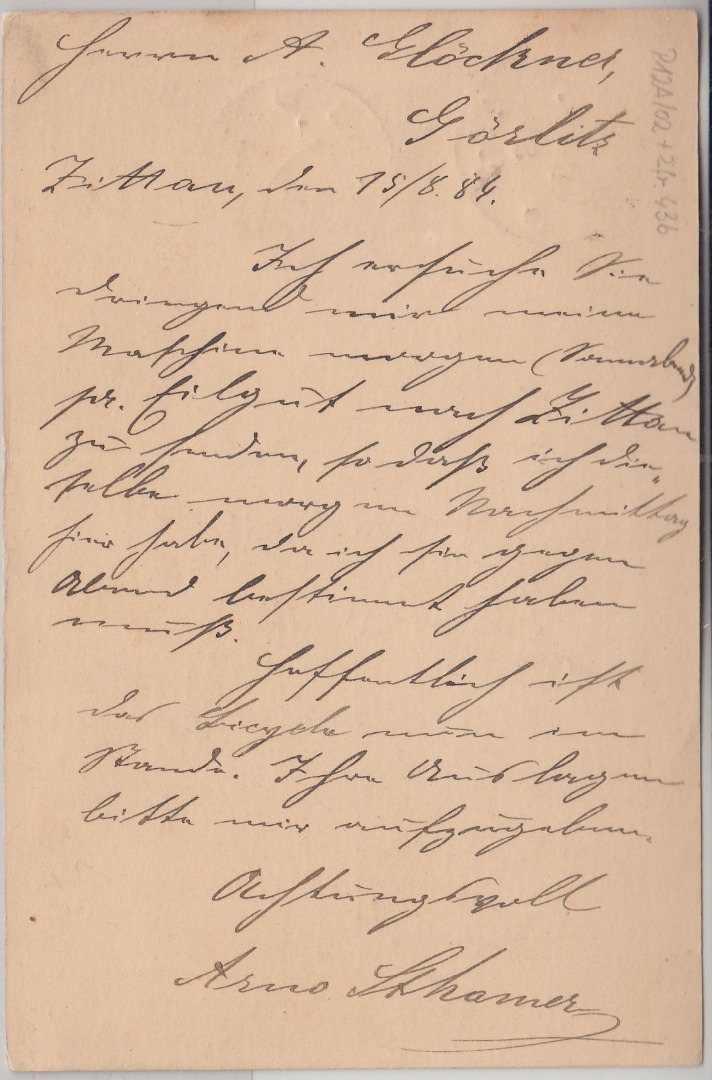 Herrn A. Glöckner,
Görlitz
Zittau, den 15/8. 84.
Ich ersuche Sie
dringend mir meine
Maschine morgen (Sonnabend)
pr. Eilgut nach Zittau
zu senden, so daß ich die„
selbe morgen Nachmittag
hier habe, da ich sie gegen
Abend bestimmt haben
muß.
Hoffentlich ist
das Bicycle nun im
Stande. Ihre Auslagen
bitte mir aufzugeben.
Achtungsvoll
Arno Sthamer
P12A/02 + Zfr. 436